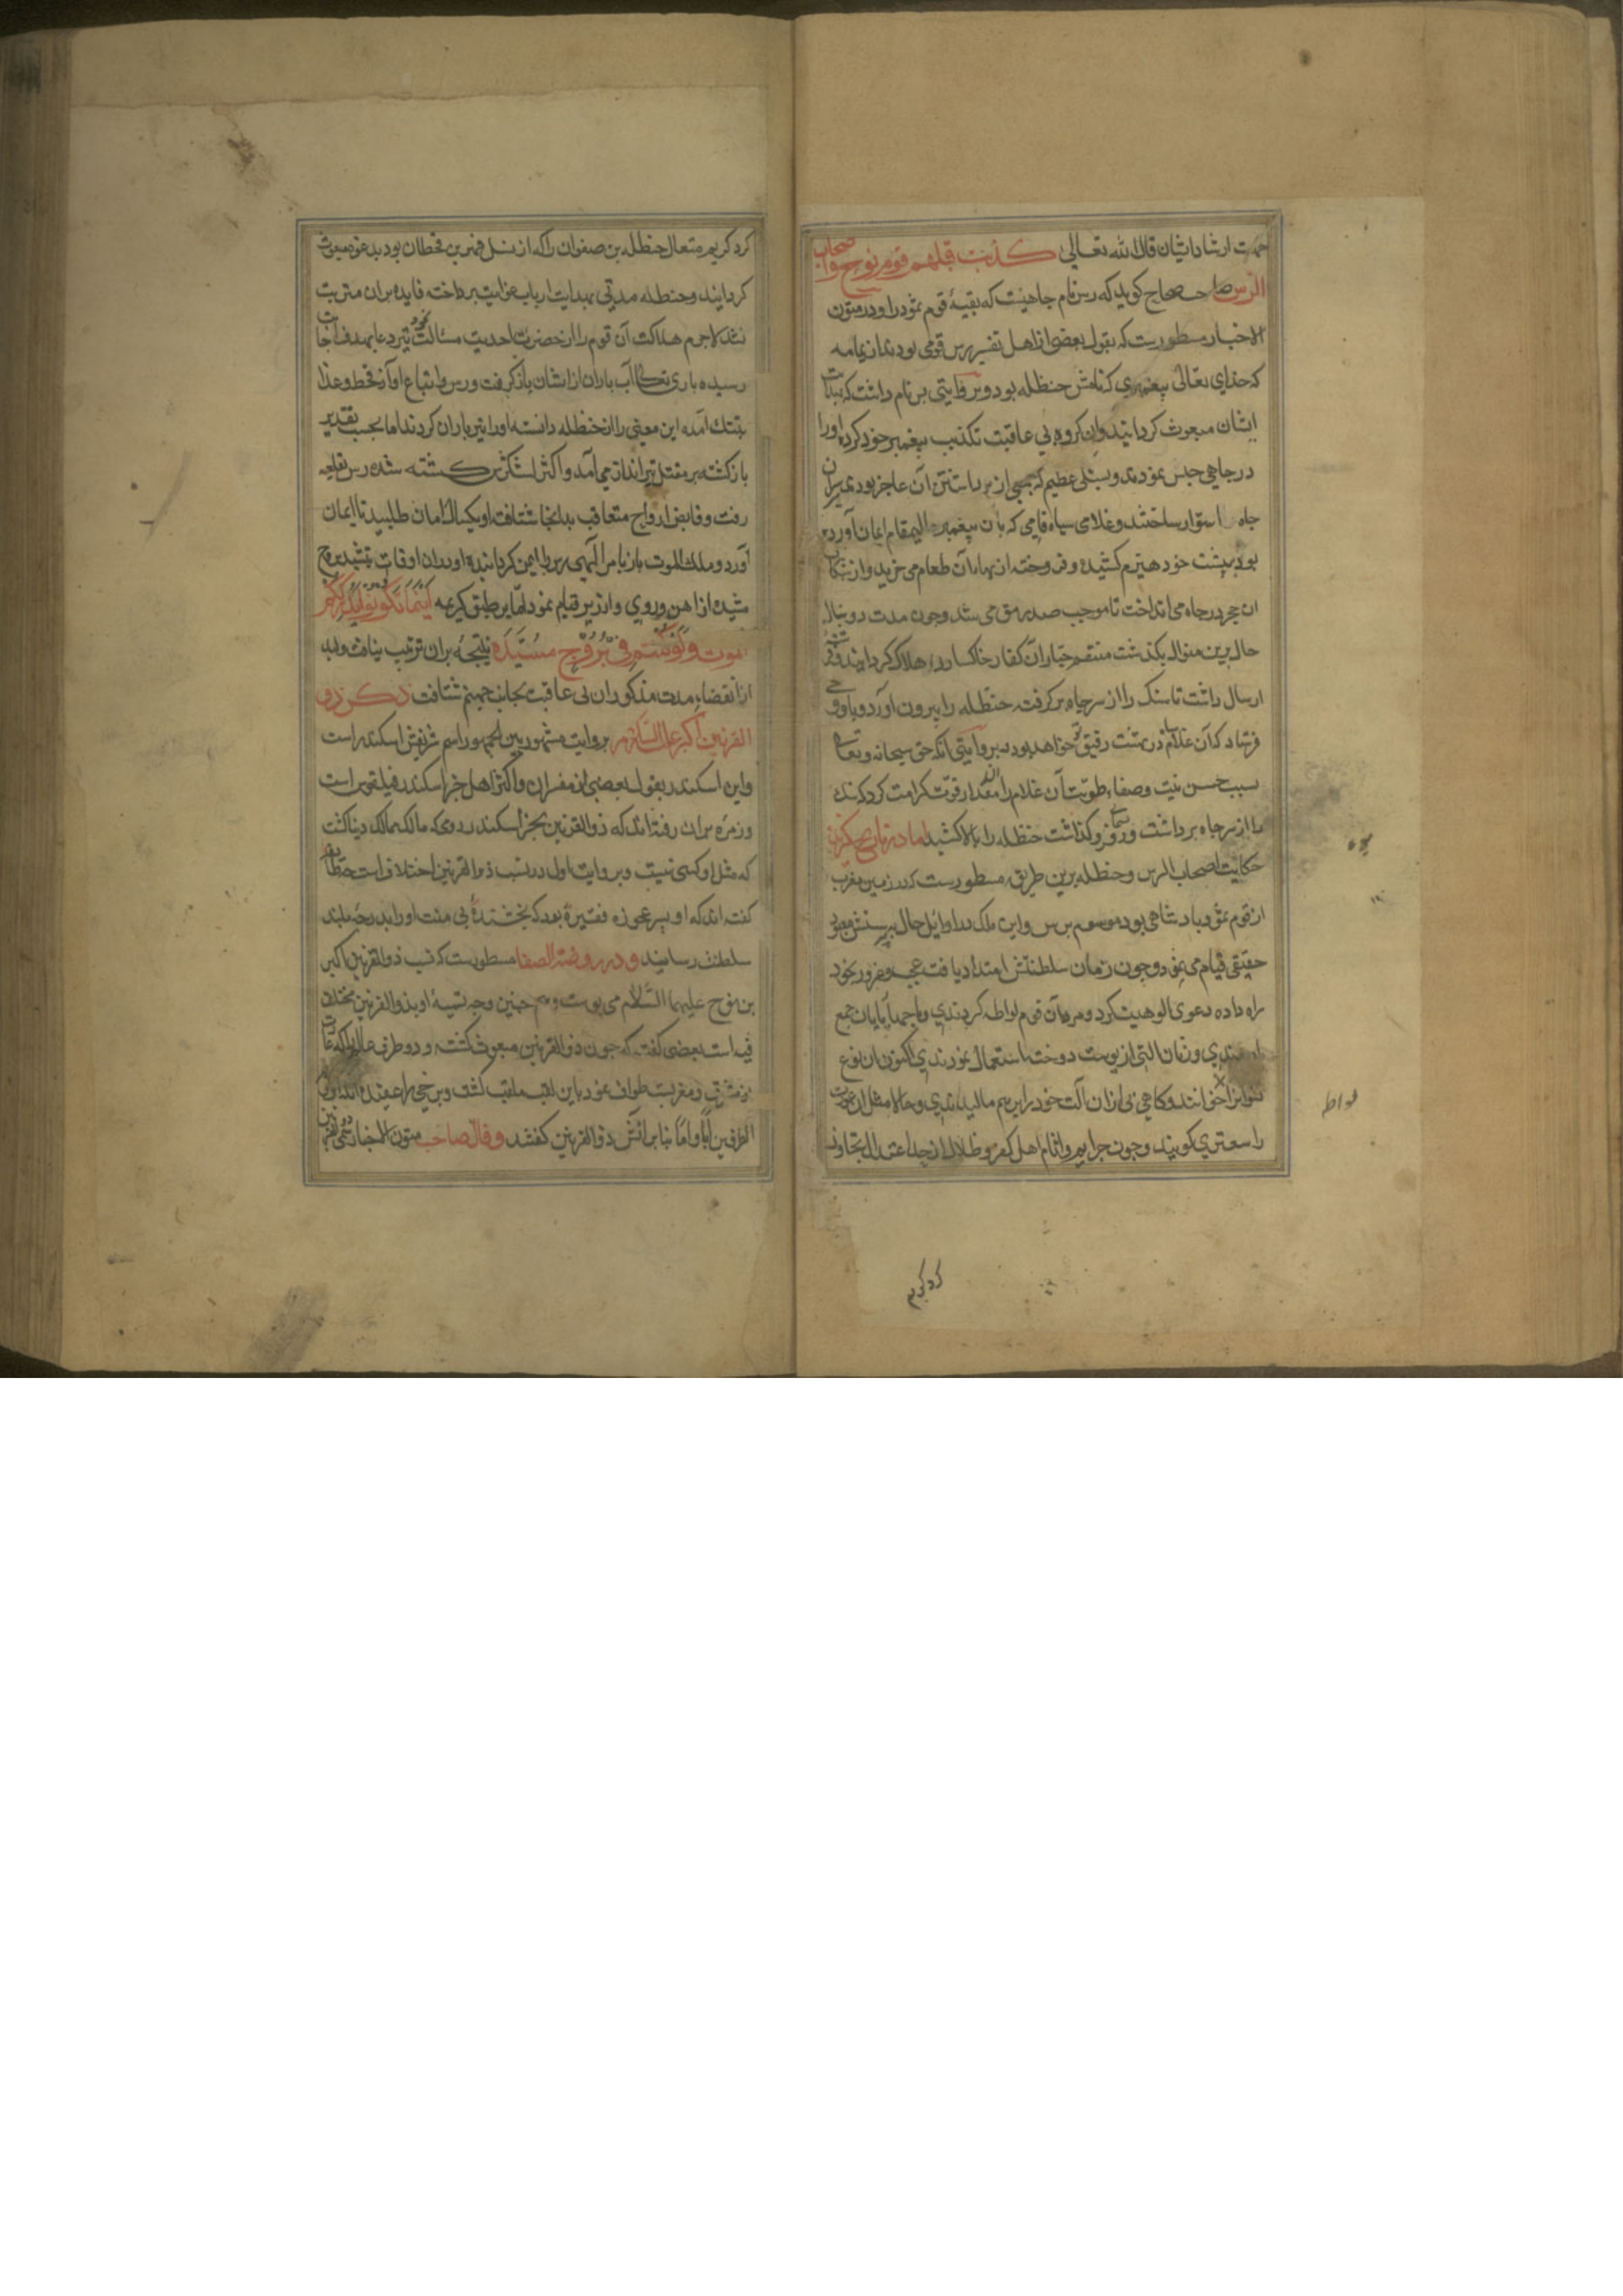 جهت ارشاد ایشان قال الله تعالی کذبت قبلهم قوم نوح واصحاب
الرس صاحب صحاح کوید که رس نام چاهیست که بقیهٔ قوم ثمود را بود در متون
الاخبار مسطورست که بقول بعضی از اهل تفسیر رس قومی بودند از یمامه
که خدای تعالی پیغمبری که نامش حنظله بود و بروایتی رس نام داشت که
ایشان مبعوث کردانید وان کروه بی عاقبت تکذیب پیغمبر خود کرده اورا
در چاهی حبس نمودند و بسنکی عظیم که جمعی از برداشتن آن عاجز بودند سران
چاه استوار ساختند و غلامی سیاه فامی که بان پیغمبر عالیمقام ایمان آورده
بود به پشت خود هیزم کشیده و فروخته از بهاء آن طعام می خرید و از شکاف
ان حجر در چاه می انداخت تا موجب سد رمق می شد و چون مدت دو سال
حال برین منوال بکذشت منتقم جبار ان کفار خاکسار را هلاک کردانید و فرشتهٔ
ارسال داشت تا سنک را از سر چاه بر کرفت حنظله را بیرون آورد و باو وحی
فرستاد که آن غلام در بهشت رفیق تو خواهد بود و بروایتی انکه حق سبحانه و تعالی
بسبب حسن نیت و صفاء طویت آن غلام را آن مقدار قوت کرامت کرد که سنک
را از سر چاه برداشت و ریسمان فرو کذاشت حنظله را ببالا کشید اما در تاریخ کزیده
حکایت اصحاب الرس و حنظله برین طریق مسطورست که در زمین مغرب
از قوم ثمود پادشاهی بود موسوم برس و این ملک در اوایل حال بپرستش معبود
حقیقی قیام می نمود و چون زمان سلطنتش امتداد یافت عجب و غرور بخود
راه داده دعوی الوهیت کرد و مردمان قوم لواطه کردندی و با چهارپایان جمع
امدندی و زنان التی از پوست دوخته استعمال نمودندی اکنون ان نوع
خوانند و کاهی بی ازان آلت خود را بر هم مالیدندی و حالا مثل ان عورت
را سعتری کویند و چون جرایم و اثام اهل کفر و ظلال از حد اعتدال تجاوز
لواط
کرد کریم
کرد کریم متعال حنظله بن صفوان را که از نسل فهر بن قحطان بود بدعوت مبعوث
کردانید و حنظله مدتی بهدایت ارباب غوایت پرداخته فایده بران مترتب
نشد لاجرم هلاکت آن قوم را از حضرت احدیت مسئالت نمود تیر دعا بهدف اجابت
رسیده باری تعالی آب باران از ایشان باز کرفت و رس و اتباع او از قحط و غلا
بتنک آمده این معنی را از حنظله دانسته او را تیرباران کردند اما بحسب تقدیر
باز کشته بر مقتل تیرانداز می آمد و اکثر لشکرش کشته شده رس بقلعه
رفت و قابض ارواح متعاقب بدانجا شتافت او یکسال امان طلبید تا ایمان
آورد و ملک الموت باز با مر الهی رس را ایمن کردانیده او دران اوقات بتشیید برج
مشیده از اهن و روی و ارزیز قیام نمود اما بر طبق کریمه اینما تکونوا یدرککم
الموت ولو کنتم فی بروج مشیدة نتیجهٔ بران ترتیب نیافت و بعد
از انقضاء مدت مذکور ان بی عاقبت بجانب جهنم شتافت ذکر ذو
القرنین اکبر علیه السلام بروایت مشهور بین الجمهور اسم شریفش اسکندر است
واین اسکندر بقول بعضی از مفسران و اکثر اهل خبر اسکندر فیلقوس است
و زمره بران رفته اند که ذو القرنین بجز اسکندر رومی که مالک ممالک دنیا کشت
که مثل او کسی نیست و بروایت اول در نسب ذو القرنین اختلافست جمعی
کفته اند که او پسر عجوزه فقیرة بود که بخشندهٔ بی منت او را بدرجهٔ بلند
سلطنت رسانید و در روضة الصفا مسطورست که نسب ذو القرنین اکبر
بن نوح علیهما السلام می پیوست و هم چنین وجه تسمیهٔ او بذو القرنین مختلف
فیه است بعضی کفته که چون ذو القرنین مبعوث کشته و دو طرف عالم را که عبارت
از مشرق و مغربست طواف نمود باین لقب ملقب کشت و برخی را عقیده آنکه او از
الطرفین أبا وامّا بنا برانش ذو القرنین کفتند و قال صاحب متون الاخبار